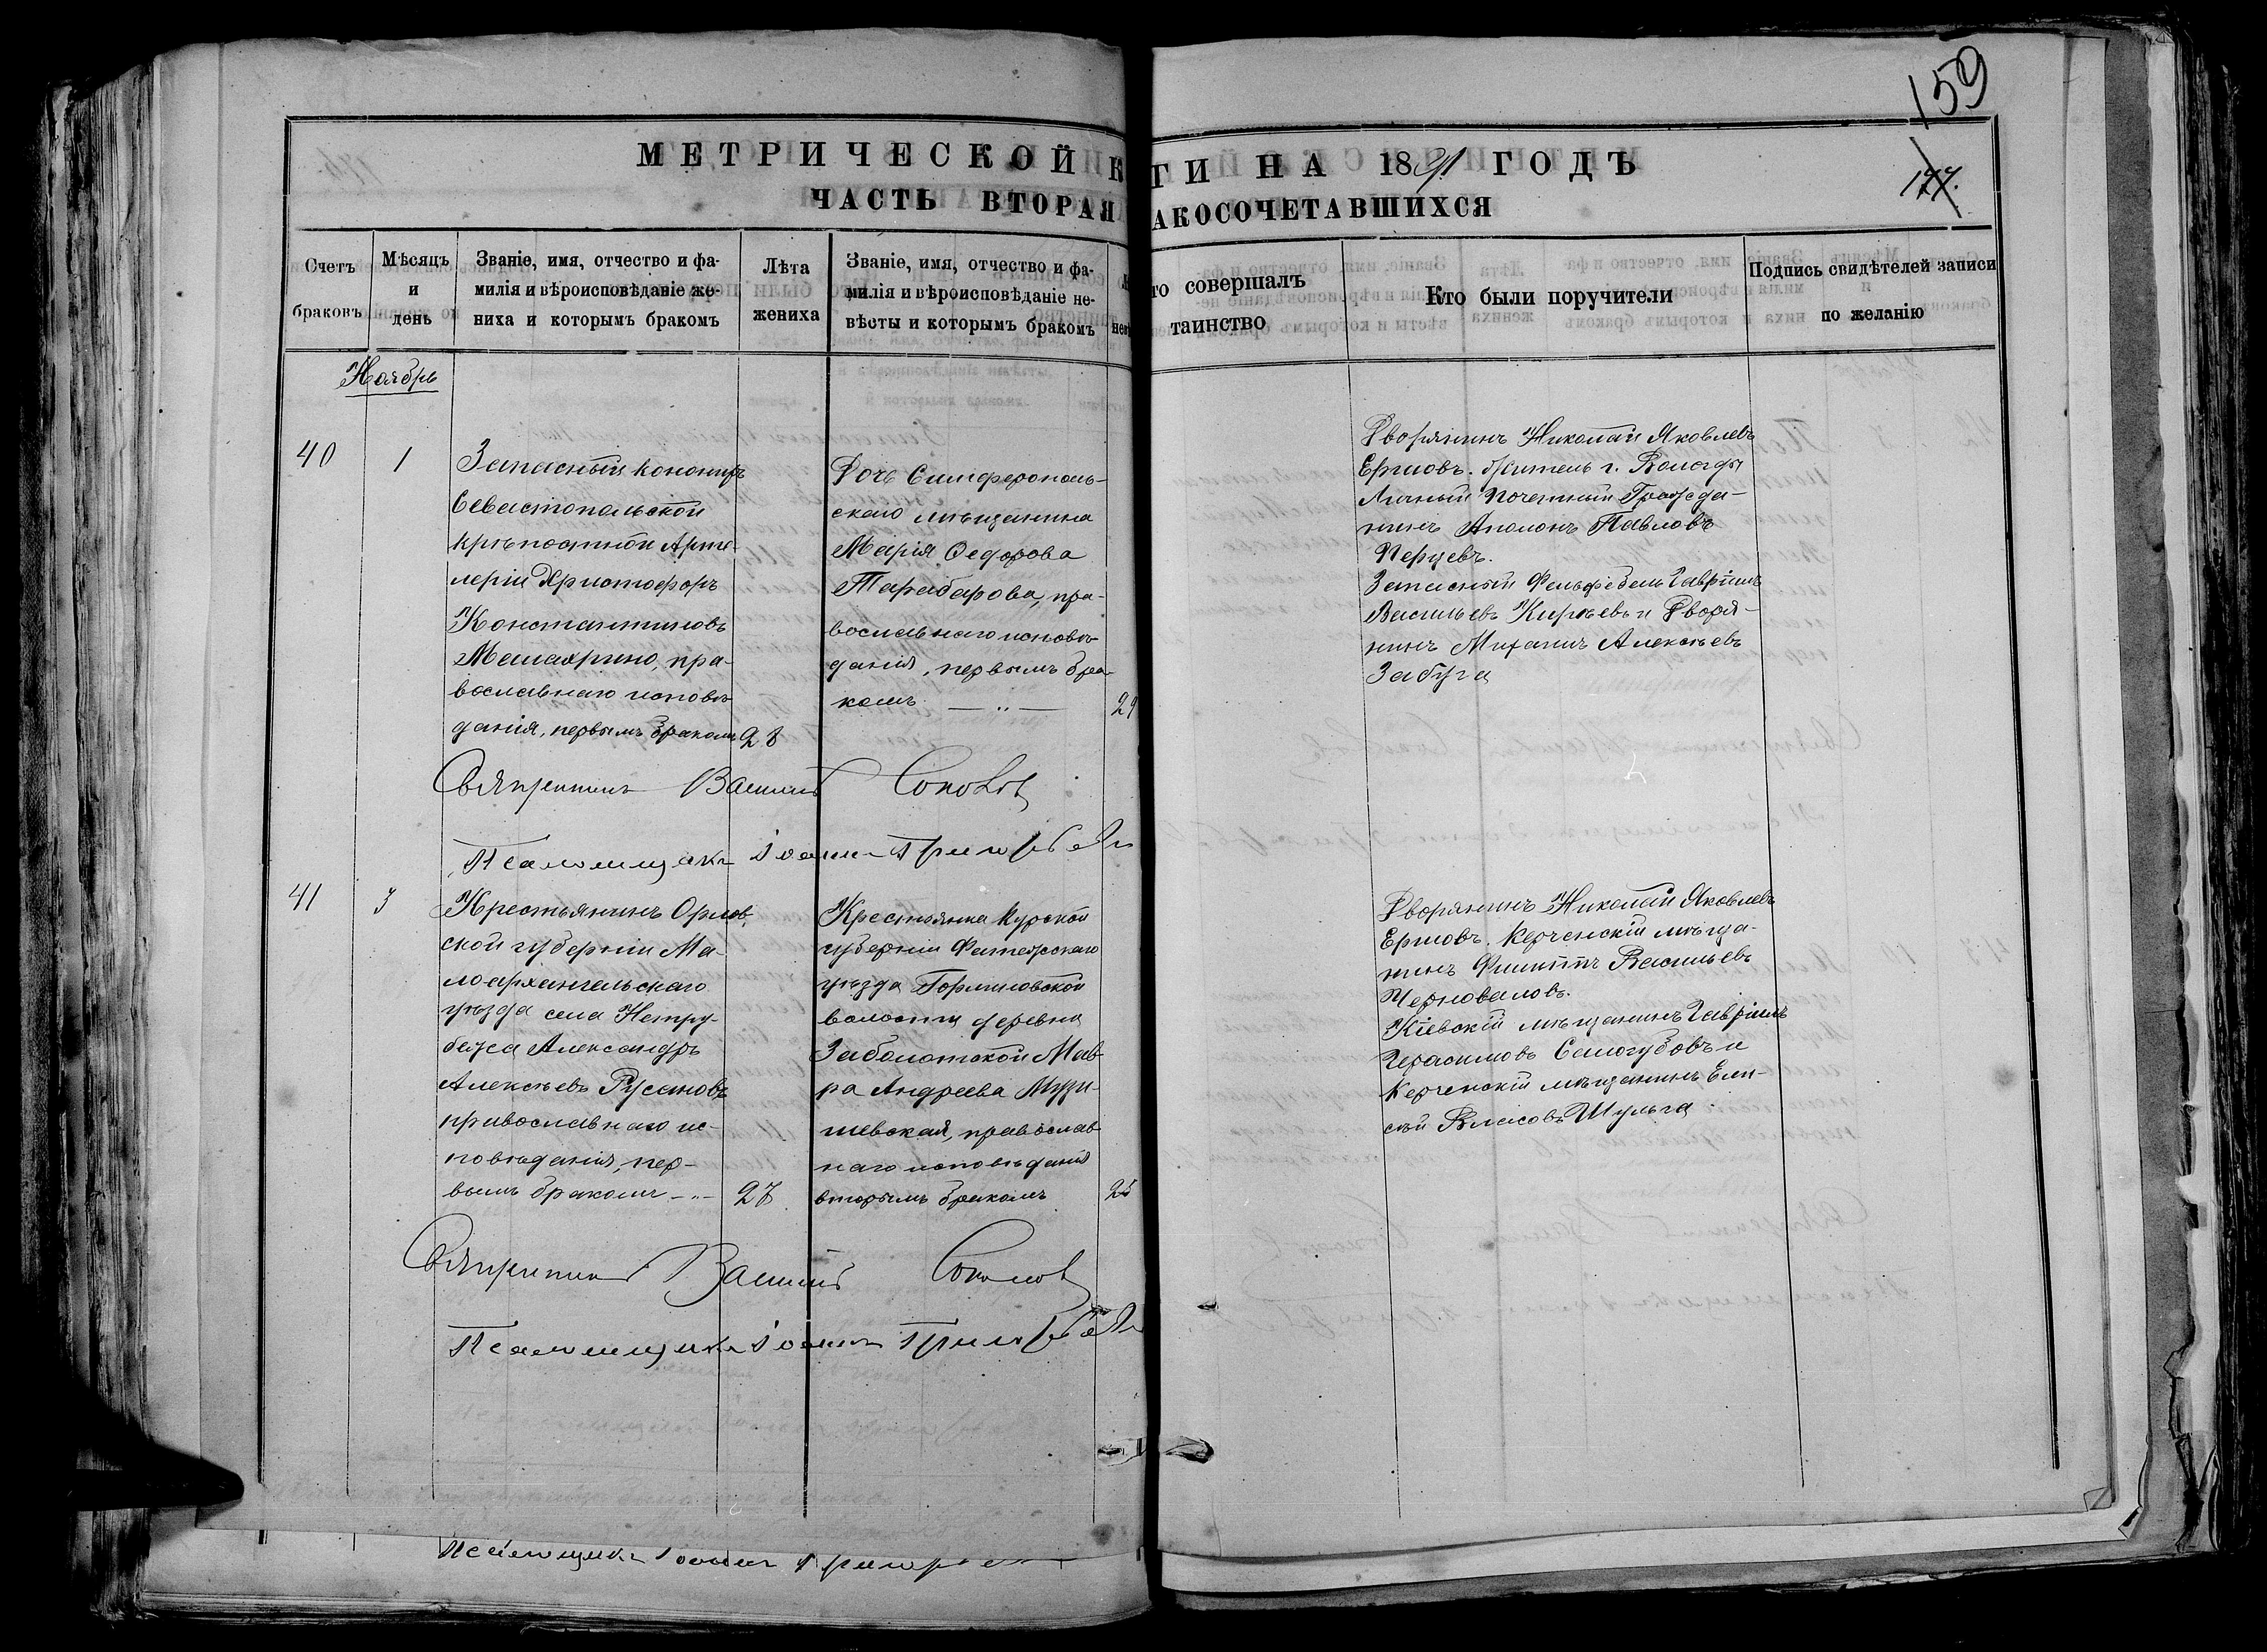 159
177.
МЕТРИЧЕСКОЙ К
ГИ НА 1891 ГОДЪ
ЧАСТЬ ВТОРАЯ
АКОСОЧЕТАВШИХСЯ
Счетъ браковъ
Мѣсяцъ и день
Званіе, имя, отчество и фа-
милія и вѣроисповѣданіе же-
ниха и которымъ бракомъ
Лѣта жениха
Званіе, имя, отчество и фа-
милія и вѣроисповѣданіе не-
вѣсты и которымъ бракомъ
то совершалъ
таинство
Кто были поручители
Подпись свидѣтелей записи
по желанію
Ноябрь
40
1
Запасный канониръ
Севастопольской
крѣпостной Арти-
леріи Христофоръ
Константиновъ
православнаго исповѣ-
данія, первымъ бракомъ
28
Дочь Симферополь-
скаго мѣщанина
Марія Ѳедорова
Тарабарова, пра-
вославнаго исповѣ-
данія, первымъ бра-
комъ
29
Дворянинъ Николай Яковлевъ
Ершовъ. житель г. Вологды
Личный Почетный Гражда-
нинъ Аполонъ Павловъ
Перцевъ.
Запасный Фельдфебель Гавріилъ
Васильевъ Кирѣевъ и Дворя-
нинъ Михаилъ Алексѣевъ
Забуга
Священникъ Василій Соколовъ
Псаломщикъ Іоаннъ
41
3
Крестьянинъ Орлов-
ской губерніи Ма-
лоархангельскаго
уѣзда села Нетру-
бежа Александръ
Алексѣевъ Русановъ
православнаго ис-
повѣданія, пер-
вымъ бракомъ
27
Крестьянка Курской
губерніи Фатежскаго
уѣзда
волости деревни
Заболотской Мав-
ра Андреева
православ-
наго исповѣданія
вторымъ бракомъ
25
Дворянинъ Николай Яковлевъ
Ершовъ. Керченскій мѣща-
нинъ Филиппъ Васильевъ
Черноваловъ.
Кіевскій мѣщанинъ Гавріилъ
Герасимовъ Самогубовъ и
Керченскій мѣщанинъ Ели-
сѣй Власовъ Шульга
Священникъ Василій Соколовъ
Псаломщикъ Іоаннъ
Псаломщикъ Іоаннъ